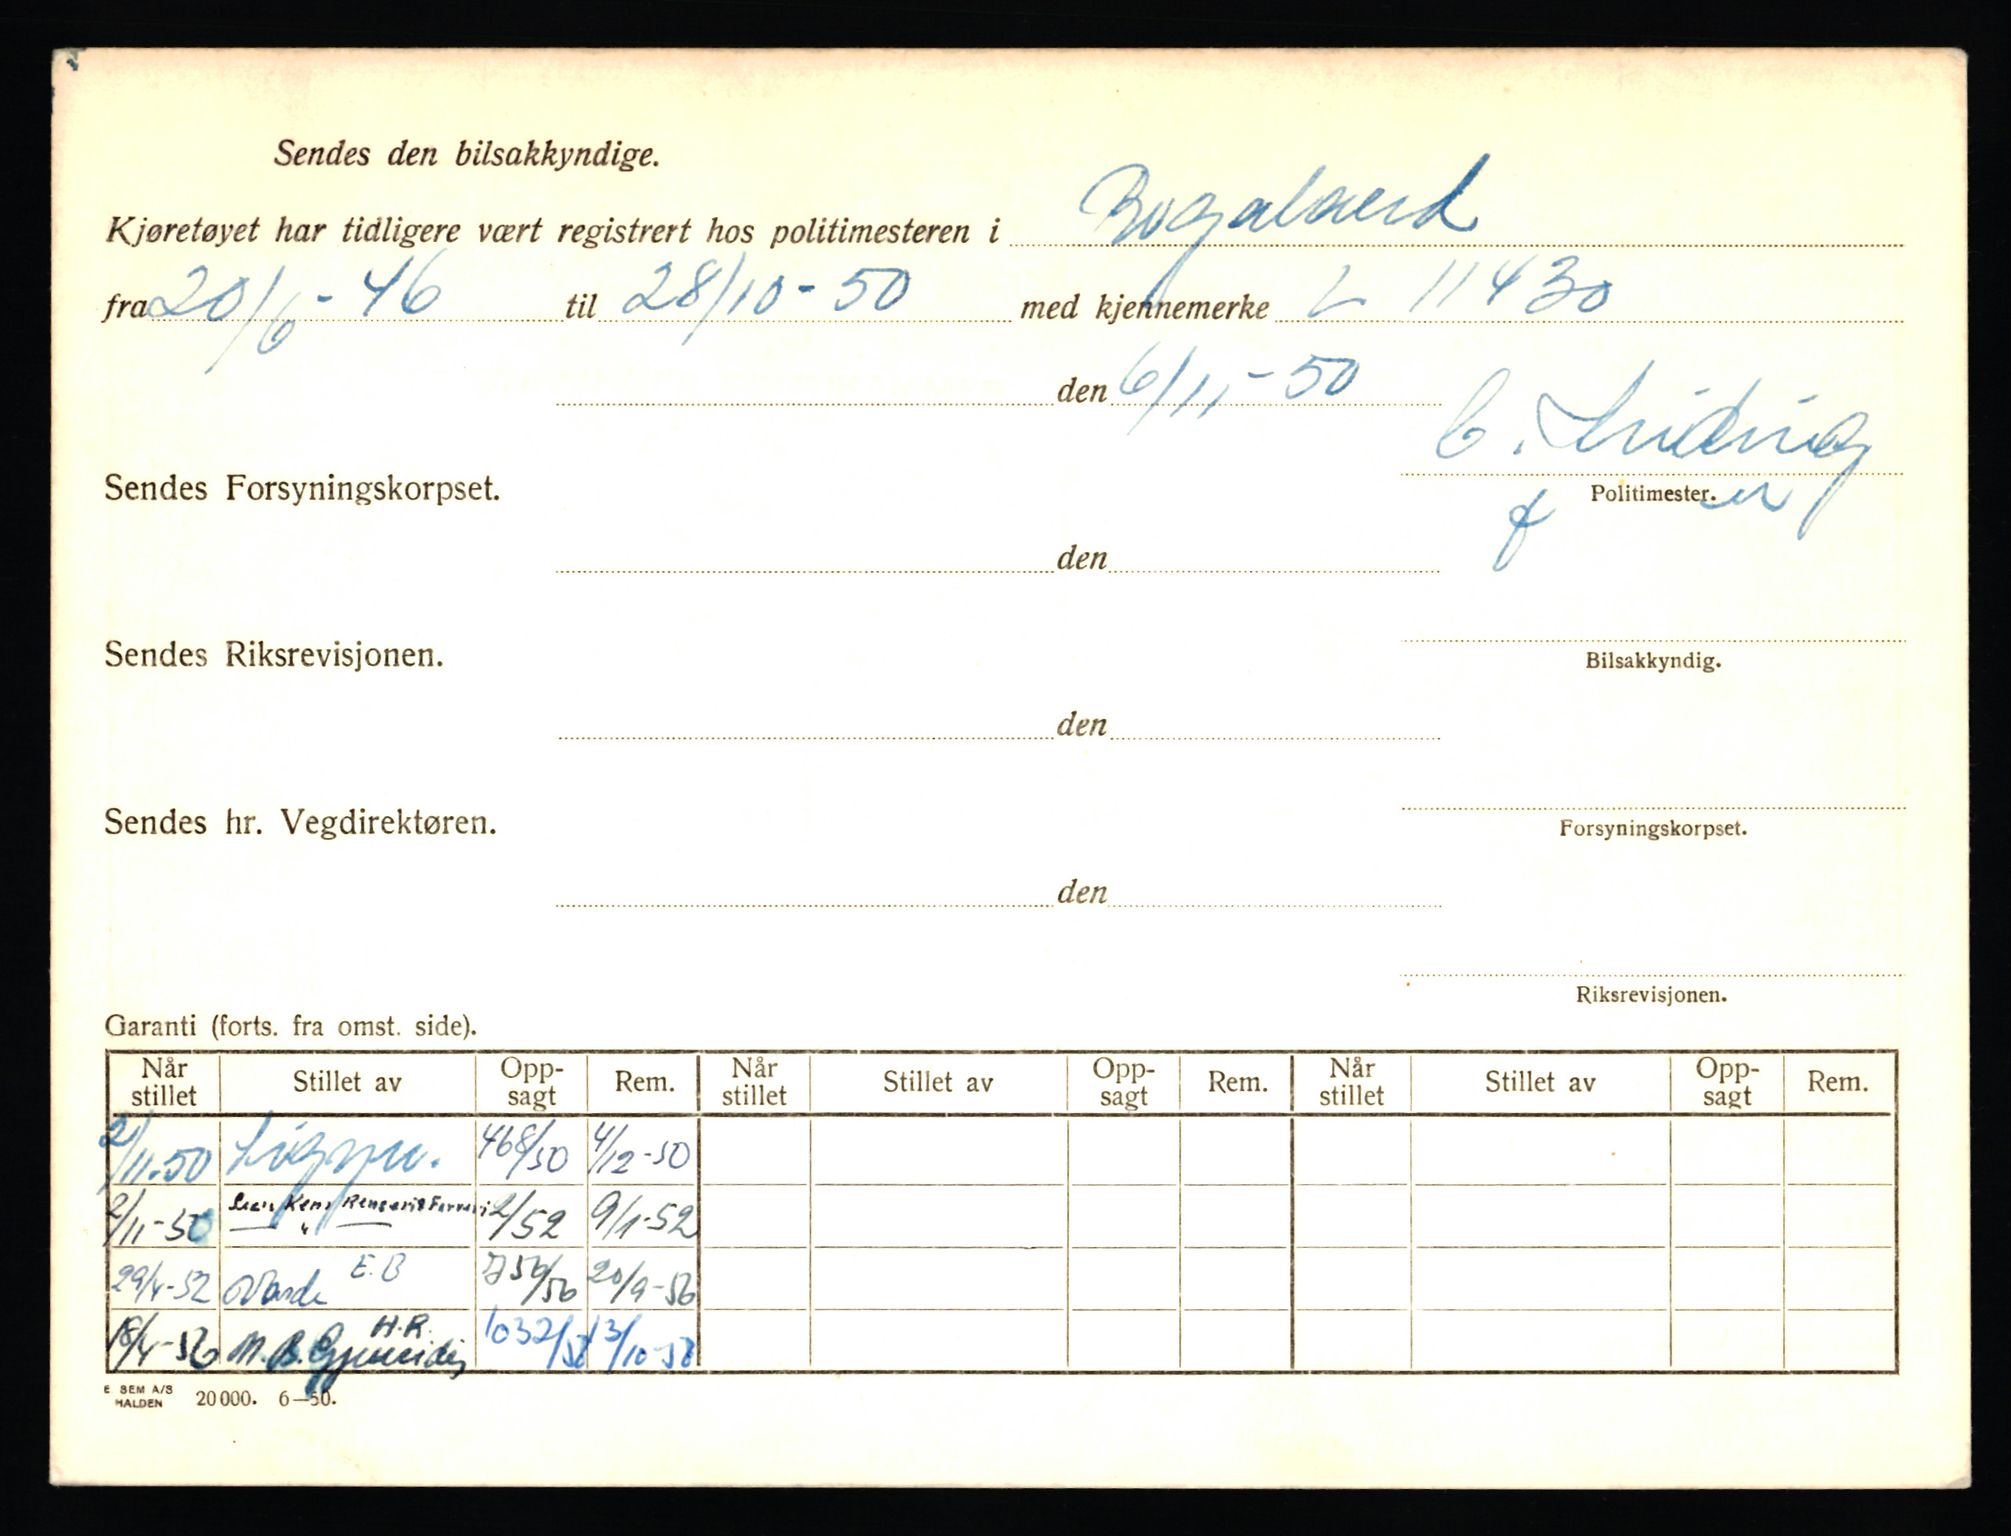 Sendes den bilsakkyndige.
Kjøretøyet har tidligere vært registrert hos politimesteren i Rogaland
fra 20/6-46 til 28/10-50 med kjennemerke L 11430
den 6/11-50
Sendes Forsyningskorpset.
Politimester.
den
Sendes Riksrevisjonen.
Bilsakkyndig.
den
Sendes hr. Vegdirektøren.
Forsyningskorpset.
den
Riksrevisjonen.
Garanti (forts. fra omst. side).
Når stillet Stillet av Opp-sagt Rem. Når stillet Stillet av Opp-sagt Rem. Når stillet Stillet av Opp-sagt Rem.
2/11-50 468/50 4/12-50
2/11-50 2/52 9/1-52
29/4-52 Norde E.B 756/56 20/9-56
18/4-56 M.B. H.R. 1032/58 13/10-58
E. SEM A/S HALDEN 20000. 6—50.